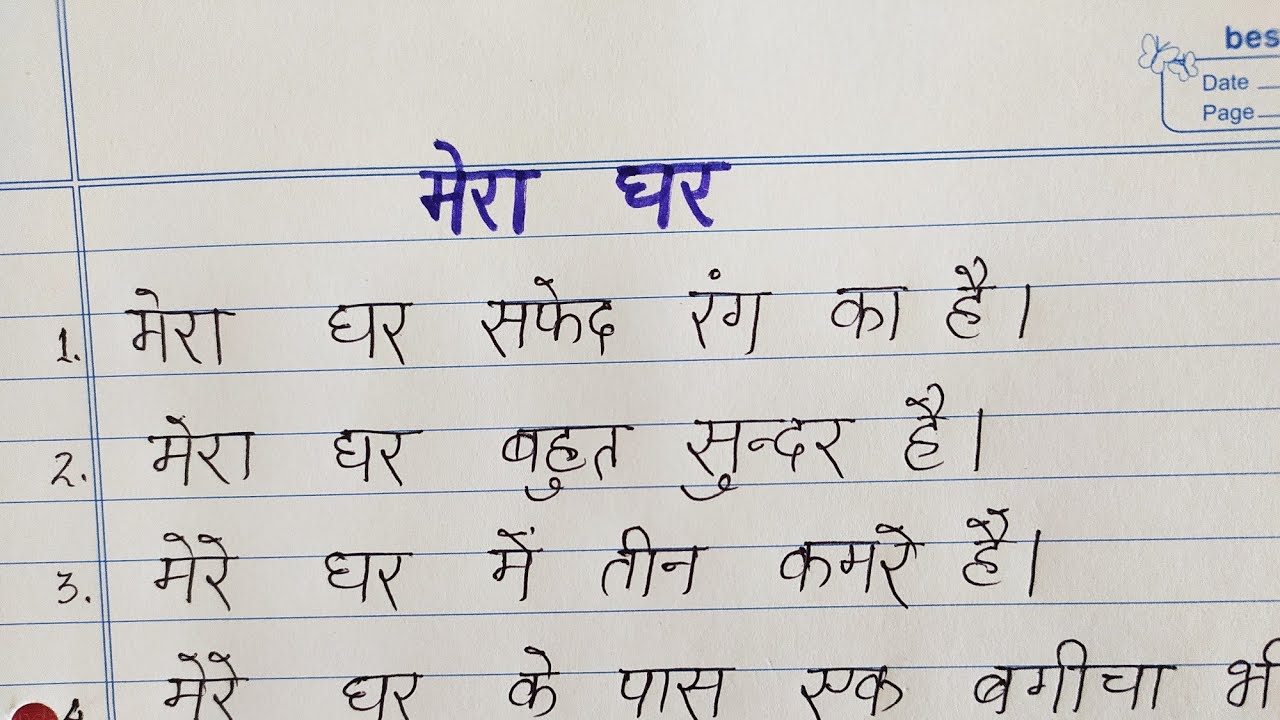 bes
Date
Page
मेरा घर
1. मेरा घर सफेद रंग का है।
2. मेरा घर बहुत सुन्दर है।
3. मेरे घर में तीन कमरे है।
4 मेरे घर के पास एक बगीचा भ